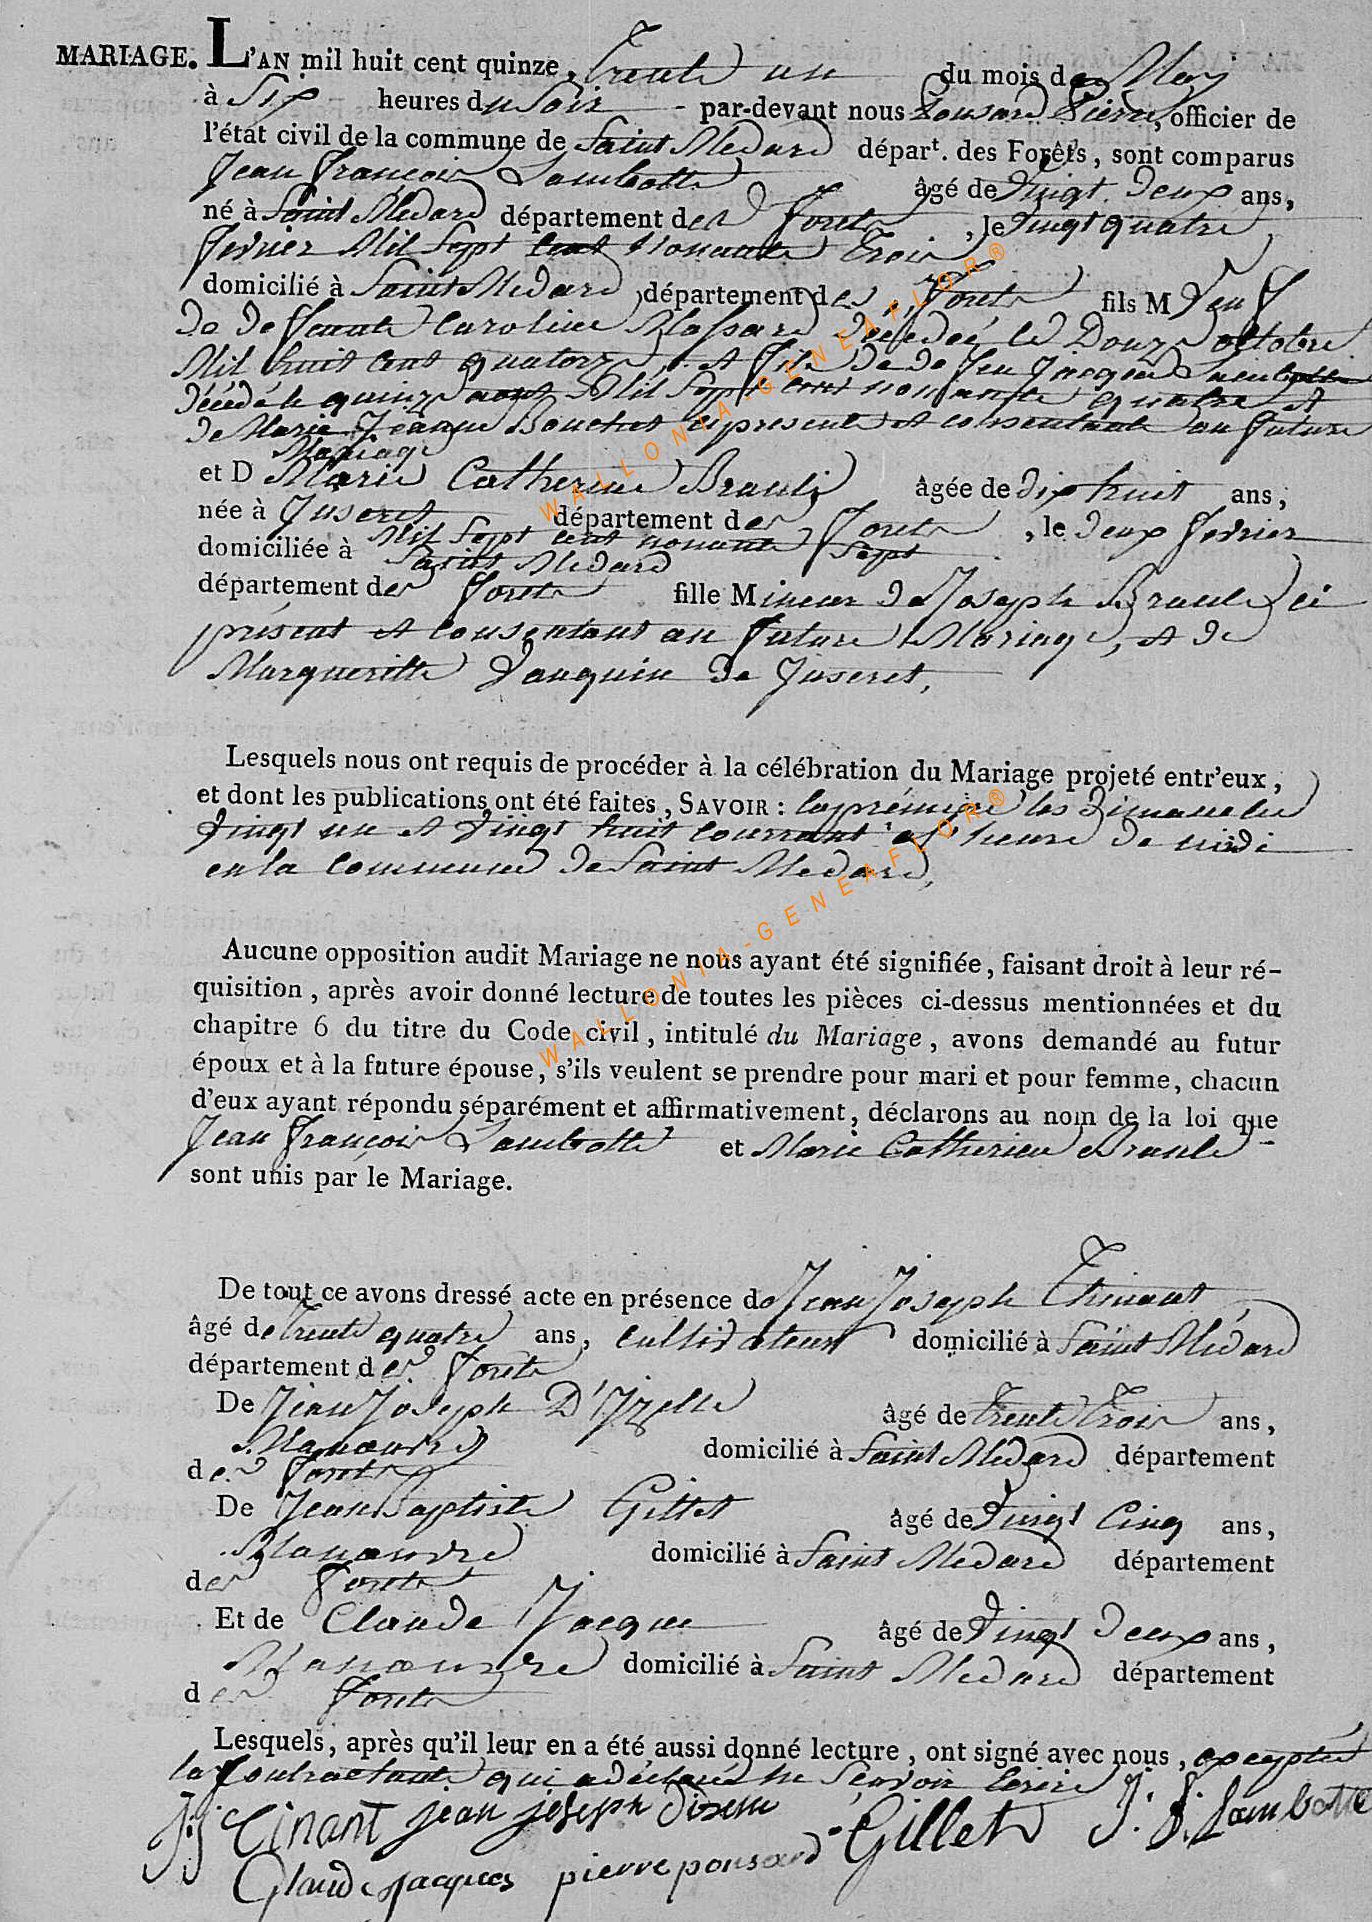 MARIAGE. L'AN mil huit cent quinze, trente un du mois de May
à Six heures du Soir par-devant nous Ponsard Pierre, officier de
l'état civil de la commune de Saint Medard départ. des Forêts, sont comparus
Jean François Lambotte âgé de vingt deux ans,
né à Saint Medard département des Forets, le vingt quatre
fevrier Mil Sept cent Nonante Trois
domicilié à Saint Medard département des Forets fils M veuf
de defunte Caroline Massard decedeé le Douze octobre
Mil huit cent quatorze, et fils de de feu Jacques Lambotte
décédé le quinze aout Mil Sept cent nonante quatre et
de Marie Jeanne Bouchet ci presente et consentante au future
Mariage
et D Marie Catherine Braule âgée de dix huit ans,
née à Juseret département des Forets, le deux fevrier
Mil Sept cent nonante Sept
domiciliée à Saint Medard
département des Forets fille Mineur de Joseph Braule ci
présent et consentant au future Mariage, et de
Margueritte Dauquin de Juseret,
Lesquels nous ont requis de procéder à la célébration du Mariage projeté entr'eux,
et dont les publications ont été faites, SAVOIR : la prémiere les dimanche
vingt un et vingt huit courrant a l'heure de midi
en la commune de Saint Medard,
Aucune opposition audit Mariage ne nous ayant été signifiée, faisant droit à leur ré-
quisition, après avoir donné lecture de toutes les pièces ci-dessus mentionnées et du
chapitre 6 du titre du Code civil, intitulé du Mariage, avons demandé au futur
époux et à la future épouse, s'ils veulent se prendre pour mari et pour femme, chacun
d'eux ayant répondu séparément et affirmativement, déclarons au nom de la loi que
Jean François Lambotte et Marie Catherine Braule
sont unis par le Mariage.
De tout ce avons dressé acte en présence de Jean Joseph Thinant
âgé de trente quatre ans, cultivateur domicilié à Saint Médard
département des Forets
De Jean Joseph D'Izelle âgé de trente trois ans,
Manoeuvre domicilié à Saint Medard département
des Forets
De Jean Baptiste Gillet âgé de vingt cinq ans,
Manoeuvre domicilié à Saint Medard département
des Forets
Et de Claude Jacque âgé de vingt deux ans,
Manoeuvre domicilié à Saint Medard département
des Forets
Lesquels, après qu'il leur en a été aussi donné lecture, ont signé avec nous, excepté
la Contractante qui a déclaré ne Scavoir écrire
J:J Tinant jean joseph dizelle Gillet J: F: Lambotte
Glaude jacques pierre ponsard
WALLONIA-GENEAFLOR®
WALLONIA-GENEAFLOR®